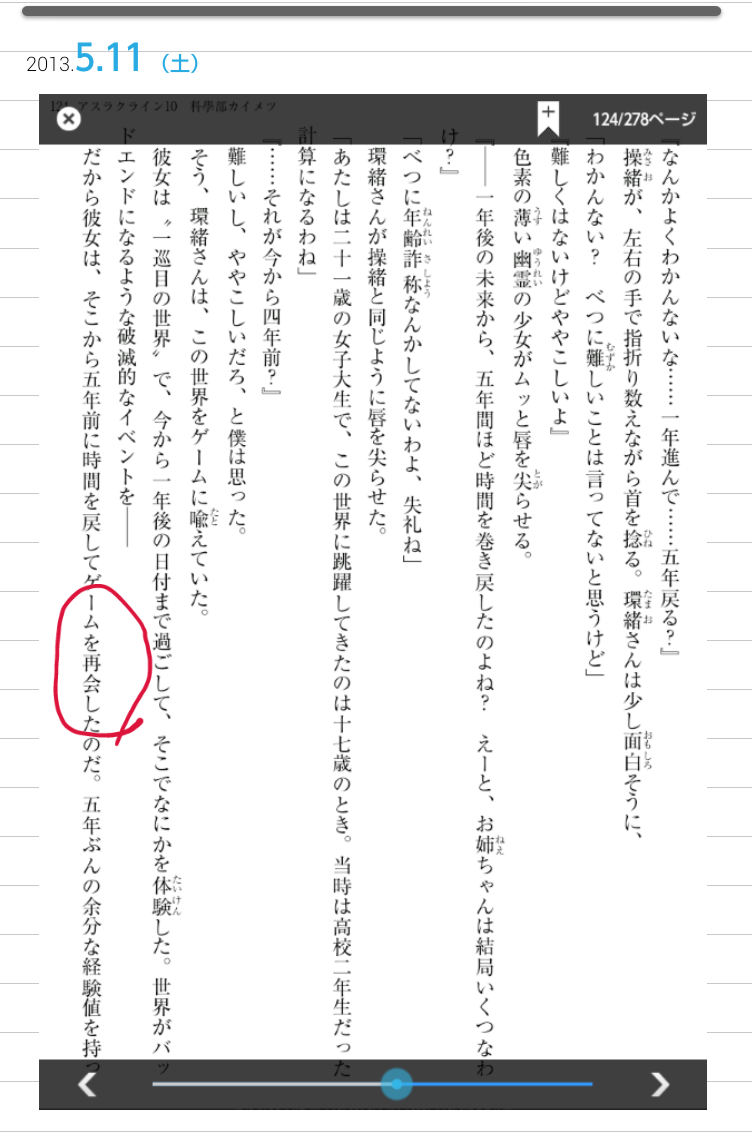 2013.5.11（土）
124 アスラクライン10 科學部カイメツ
124/278ページ
『なんかよくわかんないな……一年進んで……五年戻る？』
操緒が、左右の手で指折り数えながら首を捻る。環緒さんは少し面白そうに、
「わかんない？　べつに難しいことは言ってないと思うけど」
『難しくはないけどややこしいよ』
色素の薄い幽霊の少女がムッと唇を尖らせる。
『――一年後の未来から、五年間ほど時間を巻き戻したのよね？　えーと、お姉ちゃんは結局いくつなわ
け？』
「べつに年齢詐称なんかしてないわよ、失礼ね」
環緒さんが操緒と同じように唇を尖らせた。
「あたしは二十一歳の女子大生で、この世界に跳躍してきたのは十七歳のとき。当時は高校二年生だった
計算になるわね」
『……それが今から四年前？』
難しいし、ややこしいだろ、と僕は思った。
そう、環緒さんは、この世界をゲームに喩えていた。
彼女は〝一巡目の世界〟で、今から一年後の日付まで過ごして、そこでなにかを体験した。世界がバッ
ドエンドになるような破滅的なイベントを――
だから彼女は、そこから五年前に時間を戻してゲームを再会したのだ。五年ぶんの余分な経験値を持っ